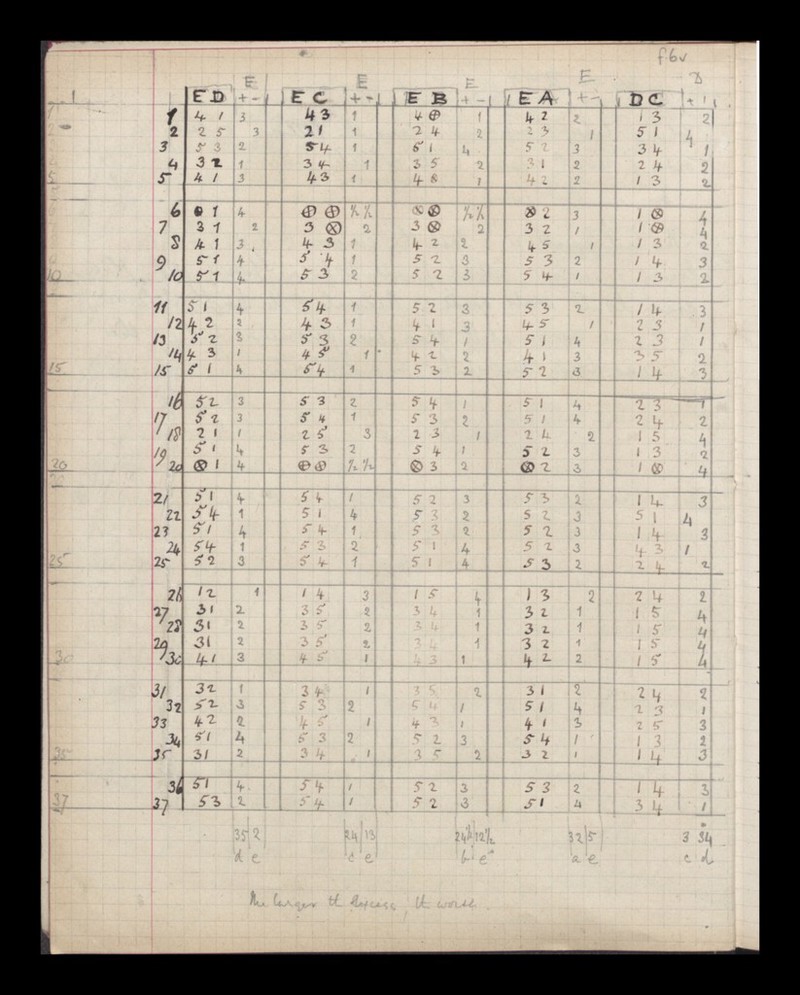 f6v
E E E E D
1 ED + - EC + - EB + - EA + - DC + -
1 41 3 43 1 4⊕ 1 42 2 13 2
2 25 3 21 1 24 2 23 1 51 4
3 53 2 54 1 51 4 52 3 34 1
4 32 1 34 1 35 2 31 2 24 2
5 41 3 43 1 48 1 42 2 13 2
6 ⊗1 4 ⊕⊕ ½ ½ ⊗⊗ ½ ½ ⊗2 3 1⊗ 4
7 31 2 3⊗ 2 3⊗ 2 32 1 1⊗ 4
8 41 3 43 1 42 2 45 1 13 2
9 51 4 54 1 52 3 53 2 14 3
10 10 51 4 53 2 52 3 54 1 13 2
11 51 4 54 1 52 3 53 2 14 3
12 42 2 43 1 41 3 45 1 23 1
13 52 3 53 2 54 1 51 4 23 1
14 43 1 45 1 42 2 41 3 35 2
15 15 51 4 54 1 53 2 52 3 14 3
16 52 3 53 2 54 1 51 4 23 1
17 52 3 54 1 53 2 51 4 24 2
18 21 1 25 3 23 1 24 2 15 4
19 51 4 53 2 54 1 52 3 13 2
20 20 ⊗1 4 ⊕⊕ ½ ½ ⊗3 2 ⊗2 3 1⊗ 4
21 51 4 54 1 52 3 53 2 14 3
22 54 1 51 4 53 2 52 3 51 4
23 51 4 54 1 53 2 52 3 14 3
24 54 1 53 2 51 4 52 3 43 1
25 25 52 3 54 1 51 4 53 2 24 2
26 12 1 14 3 15 4 13 2 24 2
27 31 2 35 2 34 1 32 1 15 4
28 31 2 35 2 34 1 32 1 15 4
29 31 2 35 2 34 1 32 1 15 4
30 30 41 3 45 1 43 1 42 2 15 4
31 32 1 34 1 35 2 31 2 24 2
32 52 3 53 2 54 1 51 4 23 1
33 42 2 45 1 43 1 41 3 25 3
34 51 4 53 2 52 3 54 1 13 2
35 35 31 2 34 1 35 2 32 1 14 3
36 51 4 54 1 52 3 53 2 14 3
37 37 53 2 54 1 52 3 51 4 34 1
35 2 24 13 24½ 12½ 32 5 3 34
d e c e b e a e c d
The larger the Excess, the worse.